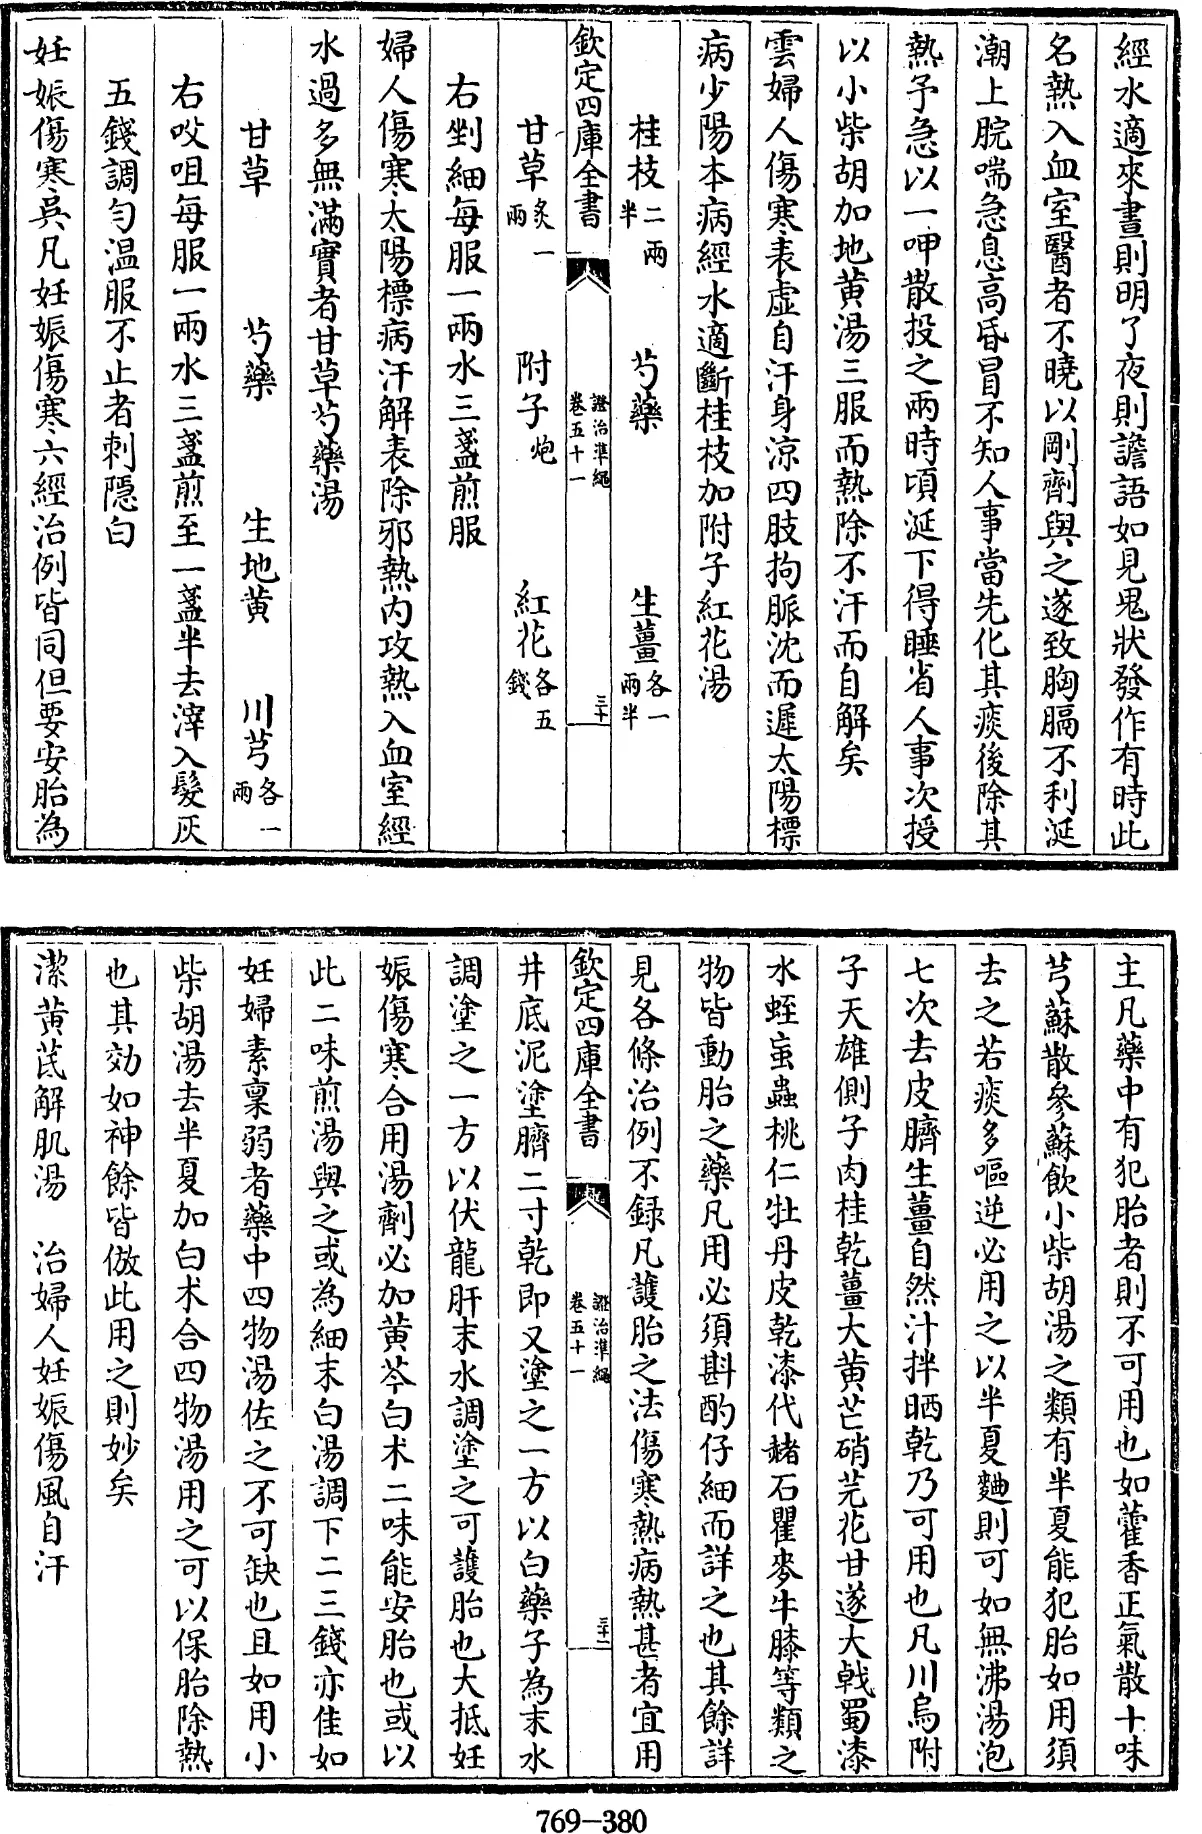 經水適來晝則明了夜則譫語如見鬼狀發作有時此
名熱入血室醫者不曉以剛劑與之遂致胸膈不利涎
潮上脘喘急息高昏冒不知人事當先化其痰後除其
熱予急以一呷散投之兩時頃涎下得睡省人事次授
以小柴胡加地黄湯三服而熱除不汗而自解矣
雲婦人傷寒表虛自汗身涼四肢拘脈沈而遲太陽標
病少陽本病經水適斷桂枝加附子紅花湯
桂枝二兩半 芍藥 生薑各一兩半
欽定四庫全書 證治準繩 卷五十一 三十
甘草炙一兩 附子炮 紅花各五錢
右剉細每服一兩水三盞煎服
婦人傷寒太陽標病汗解表除邪熱内攻熱入血室經
水過多無滿實者甘草芍藥湯
甘草 芍藥 生地黄 川芎各一兩
右㕮咀每服一兩水三盞煎至一盞半去滓入髮灰
五錢調勻温服不止者刺隱白
妊娠傷寒吳凡妊娠傷寒六經治例皆同但要安胎為
主凡藥中有犯胎者則不可用也如藿香正氣散十味
芎蘇散參蘇飲小柴胡湯之類有半夏能犯胎如用須
去之若痰多嘔逆必用之以半夏麯則可如無沸湯泡
七次去皮臍生薑自然汁拌晒乾乃可用也凡川烏附
子天雄側子肉桂乾薑大黄芒硝芫花甘遂大戟蜀漆
水蛭䖟蟲桃仁牡丹皮乾漆代赭石瞿麥牛膝等類之
物皆動胎之藥凡用必須斟酌仔細而詳之也其餘詳
見各條治例不録凡護胎之法傷寒熱病熱甚者宜用
欽定四庫全書 證治準繩 卷五十一 三十一
井底泥塗臍二寸乾即又塗之一方以白藥子為末水
調塗之一方以伏龍肝末水調塗之可護胎也大抵妊
娠傷寒合用湯劑必加黄芩白术二味能安胎也或以
此二味煎湯與之或為細末白湯調下二三錢亦佳如
妊婦素稟弱者藥中四物湯佐之不可缺也且如用小
柴胡湯去半夏加白术合四物湯用之可以保胎除熱
也其効如神餘皆倣此用之則妙矣
潔黄芪解肌湯 治婦人妊娠傷風自汗
769-380